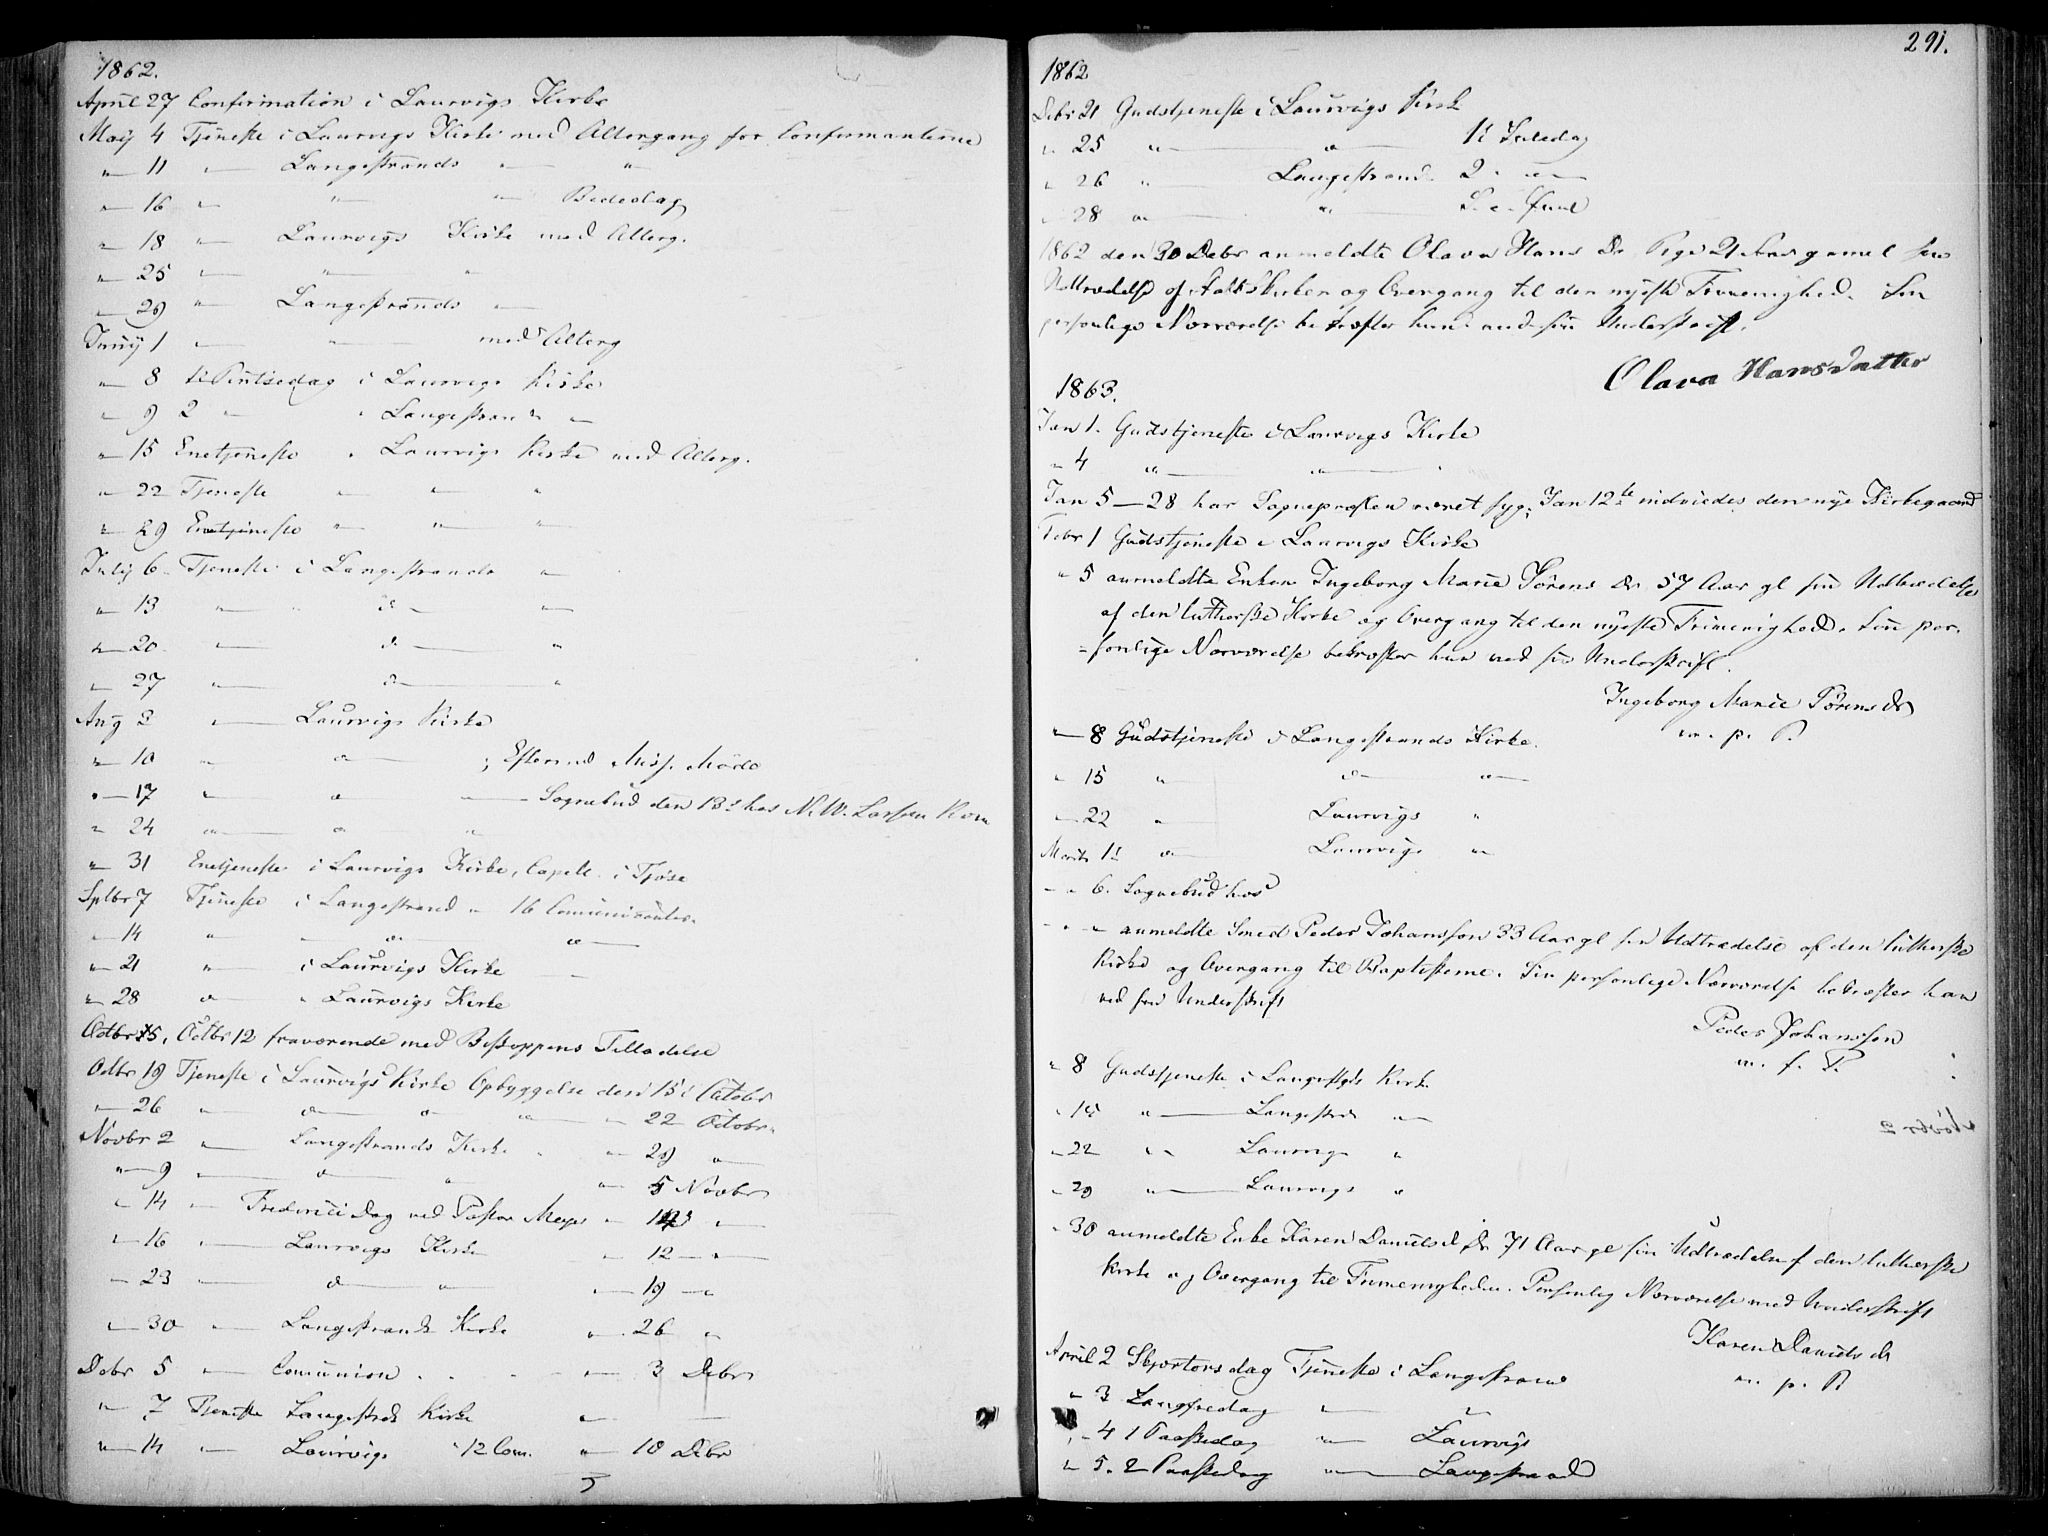 1862.
April 27 Confirmation i Laurvigs Kirke
Maij 4 Tjeneste i Laurvigs Kirke med Altergang for Confirmanterne
" 11 " Langestrands " "
" 16 " " " Bededag
" 18 " Laurvigs Kirke med Alterg.
" 25 " " "
" 29 " Langestrands "
Junij 1 " " med Alterg
" 8 1ste Pintsedag i Laurvigs Kirke
" 9 2 " " Langestrands "
" 15 Enetjeneste " Laurvigs Kirke med Alterg.
" 22 Tjeneste " " "
" 29 Enetjeneste " " "
Julij 6 Tjeneste i Langestrands "
" 13 " " do "
" 20 " do "
" 27 " do "
Aug 3 " Laurvigs Kirke
" 10 " " ; Efterm. Miss. Møde
" 17 " " " Sognebud den 13d hos N. W. Larssen
" 24 " " "
" 31 Enetjeneste i Laurvigs Kirke, Capell. i Tjøse
Sptbr 7 Tjeneste i Langestrand " 16 Communicanter.
" 14 " " " "
" 21 " i Laurvigs Kirke
" 28 " " Laurvigs Kirke
Octbr 5, Octbr 12 fraværende med Biskoppens Tilladelse
Octbr 19 Tjeneste i Laurvigs Kirke Opbyggelse den 15d Octobr
" 26 " " " " " 22 Octobr.
Novbr 2 " Langestrands Kirke " " 29 "
" 9 " " " " 5 Novbr
" 14 " Fredericidag ved Pastor Meyer "
" 16 " Laurvigs Kirke " 12 "
" 23 " " " " 19 "
" 30 " Langestrands Kirke " 26 "
Debr 5 " Comunion " 3 Debr
" 7 Tjeneste Langestrds Kirke "
" 14 " Laurvigs " 12 Com. " 10 Debr
291.
1862
Debr 21 Gudstjeneste i Laurvigs Kirke
" 25 " " 1ste Juledag
" 26 " Langestrand 2 "
" 28 " " S. e. Juul
1862 den 30 Debr anmeldte Olava Hans Dr Pige 21 Aar gammel sin
Udtrædelse af Statskirken og Overgang til den nyeste Frimenighed. Sin
personlige Nærværelse bekræfter hun med sin Underskrift.
Olava Hansdatter
1863.
Jan 1. Gudstjeneste i Laurvigs Kirke
" 4 " "
Jan 5 — 28 har Sognepræsten været syg; Jan 12te indviedes den nye Kirkegaard
Febr 1 Gudstjeneste i Laurvigs Kirke
" 5 anmeldte Enken Ingeborg Marie Sørens Dr 57 Aar gl sin Udtrædelse
af den lutherske Kirke og Overgang til den nyeste Frimenighed. Sin per-
=sonlige Nærværelse bekræfter hun ved sin Underskrift.
Ingeborg Marie Sørens dr
m. p. P.
" 8 Gudstjeneste i Langestrands Kirke.
" 15 " do "
" 22 " Laurvigs "
Marts 1 " Laurvigs "
" 6. Sognebud hos
" " anmeldte Smed Peder Johanssen 33 Aar gl sin Udtrædelse af den lutherske
Kirke og Overgang til Baptisterne. Sin personlige Nærværelse bekræfter han
ved sin Underskrift
Peder Johanssen
m. f. P.
" 8 Gudstjeneste i Langestrds Kirke
" 15 " Langestrds "
" 22 " Laurvigs "
" 29 " Laurvigs "
" 30 anmeldte Enke Karen Daniels Dr 71 Aar gl sin Udtrædelse af den lutherske
Kirke og Overgang til Frimenigheden. Personlig Nærværelse med Underskrift
Karen Daniels dr
m. p. P.
April 2 Skjærtorsdag Tjeneste i Langestrand
" 3 Langfredag " "
" 4 1 Paaskedag " Laurvigs
" 5. 2 Paaskedag " Langestrand